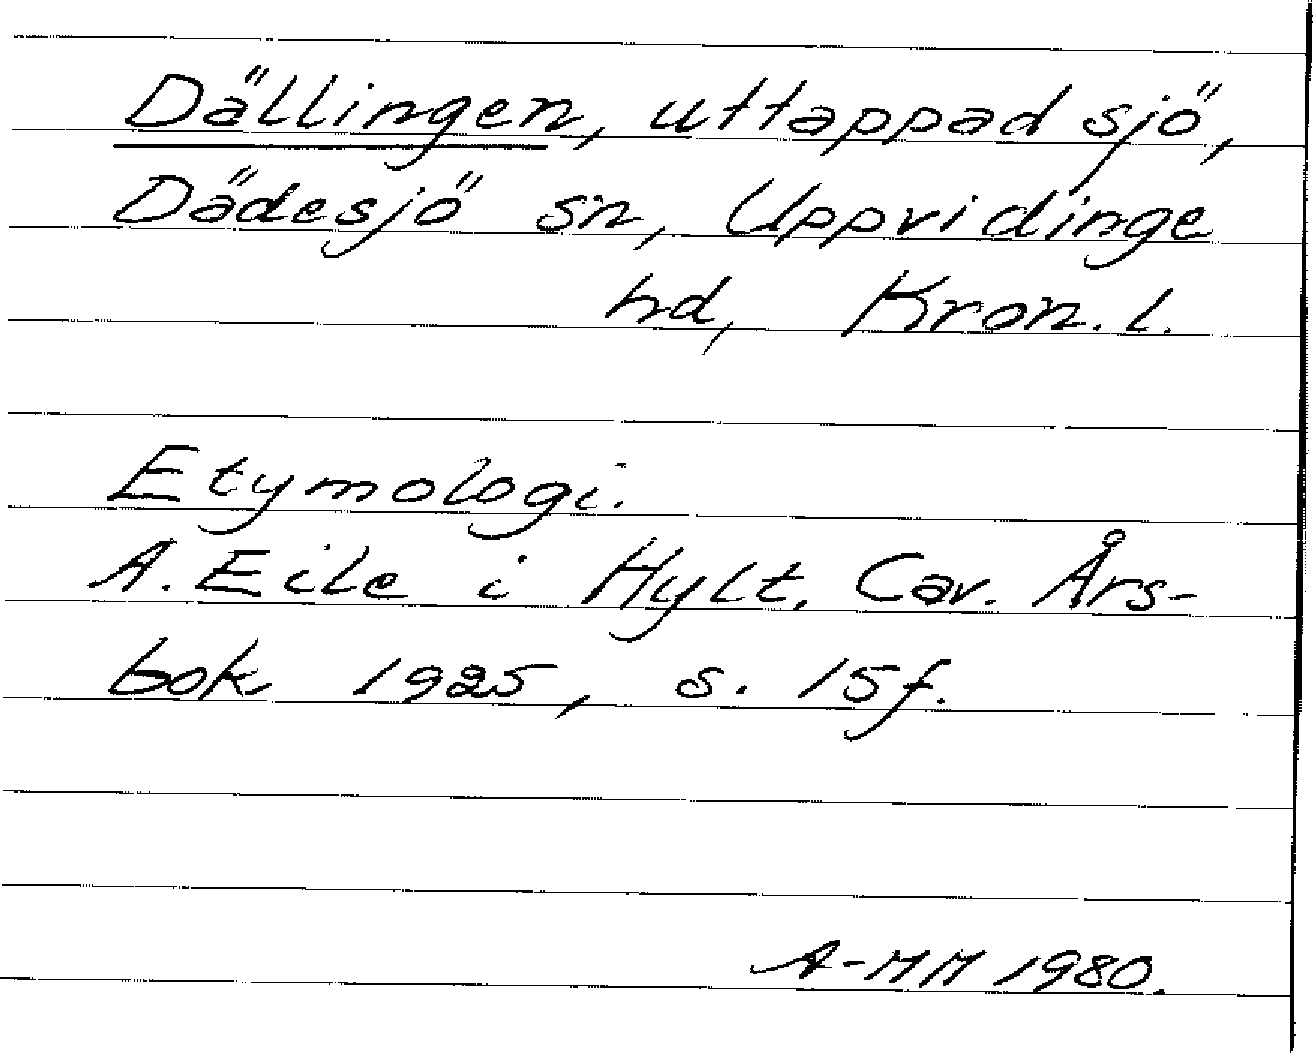 Dällingen, uttappad sjö,
Dädesjö sn, Uppvidinge
hd, Kron. l.
Etymologi.
A. Eile i Hylt. Cav. Års-
bok 1925, s. 15f.
A-MM 1980.